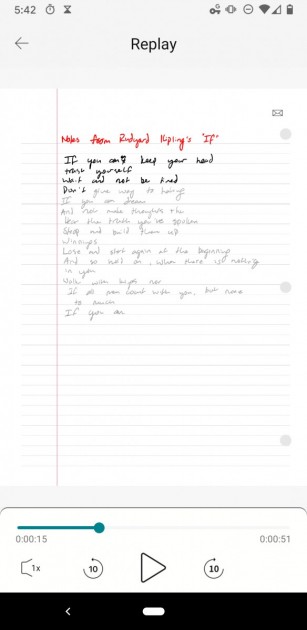 5:42
Replay
Notes from Rudyard Kipling's 'If'
If you can keep your head
trust yourself
Wait and not be tired
Don't give way to hating
If you can dream
And not make thoughts the
bear the truth you've spoken
Stop and build them up
winnings
Lose and start again at the beginnings
And so hold on, when there is nothing
in you
Walk with kings nor
If all men count with you, but none
to much
If you can
0:00:15
0:00:51
1x
10
10